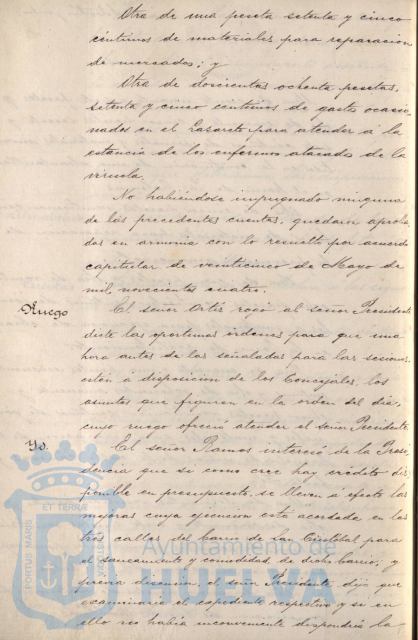 Otra de una peseta setenta y cinco
céntimos de materiales para reparacion
de mercados; y
Otra de doscientas ochenta pesetas,
setenta y cinco céntimos de gastos ocasio-
nados en el Lazareto para atender á la
estancia de los enfermos atacados de la
viruela.
No habiéndose impugnado ninguna
de las precedentes cuentas, quedaron aproba-
das en armonia con lo resuelto por acuerdo
capitular de veinticinco de Mayo de
mil novecientos cuatro.
Ruego
El señor Ortiz rogó al señor Presidente
dicte las oportunas órdenes para que una
hora antes de las señaladas para las sesiones
estén á disposicion de los Concejales, los
asuntos que figuran en la orden del dia,
cuyo ruego ofreció atender el señor Presidente.
Yd.
El señor Ramos interesó de la Presi-
dencia que si como cree hay crédito dis-
ponible en presupuesto, se lleven á efecto las
mejoras cuya ejecucion está acordada en las
tres calles del barrio de San Cristóbal para
el saneamiento y comodidad de dicho barrio; y
prévia discusion, el señor Presidente dijo que
examinaria el expediente respectivo y si en
ello no habia inconveniente dispondria la
PORTUS MARIS
ET TERRÆ
Ayuntamiento de
HUELVA